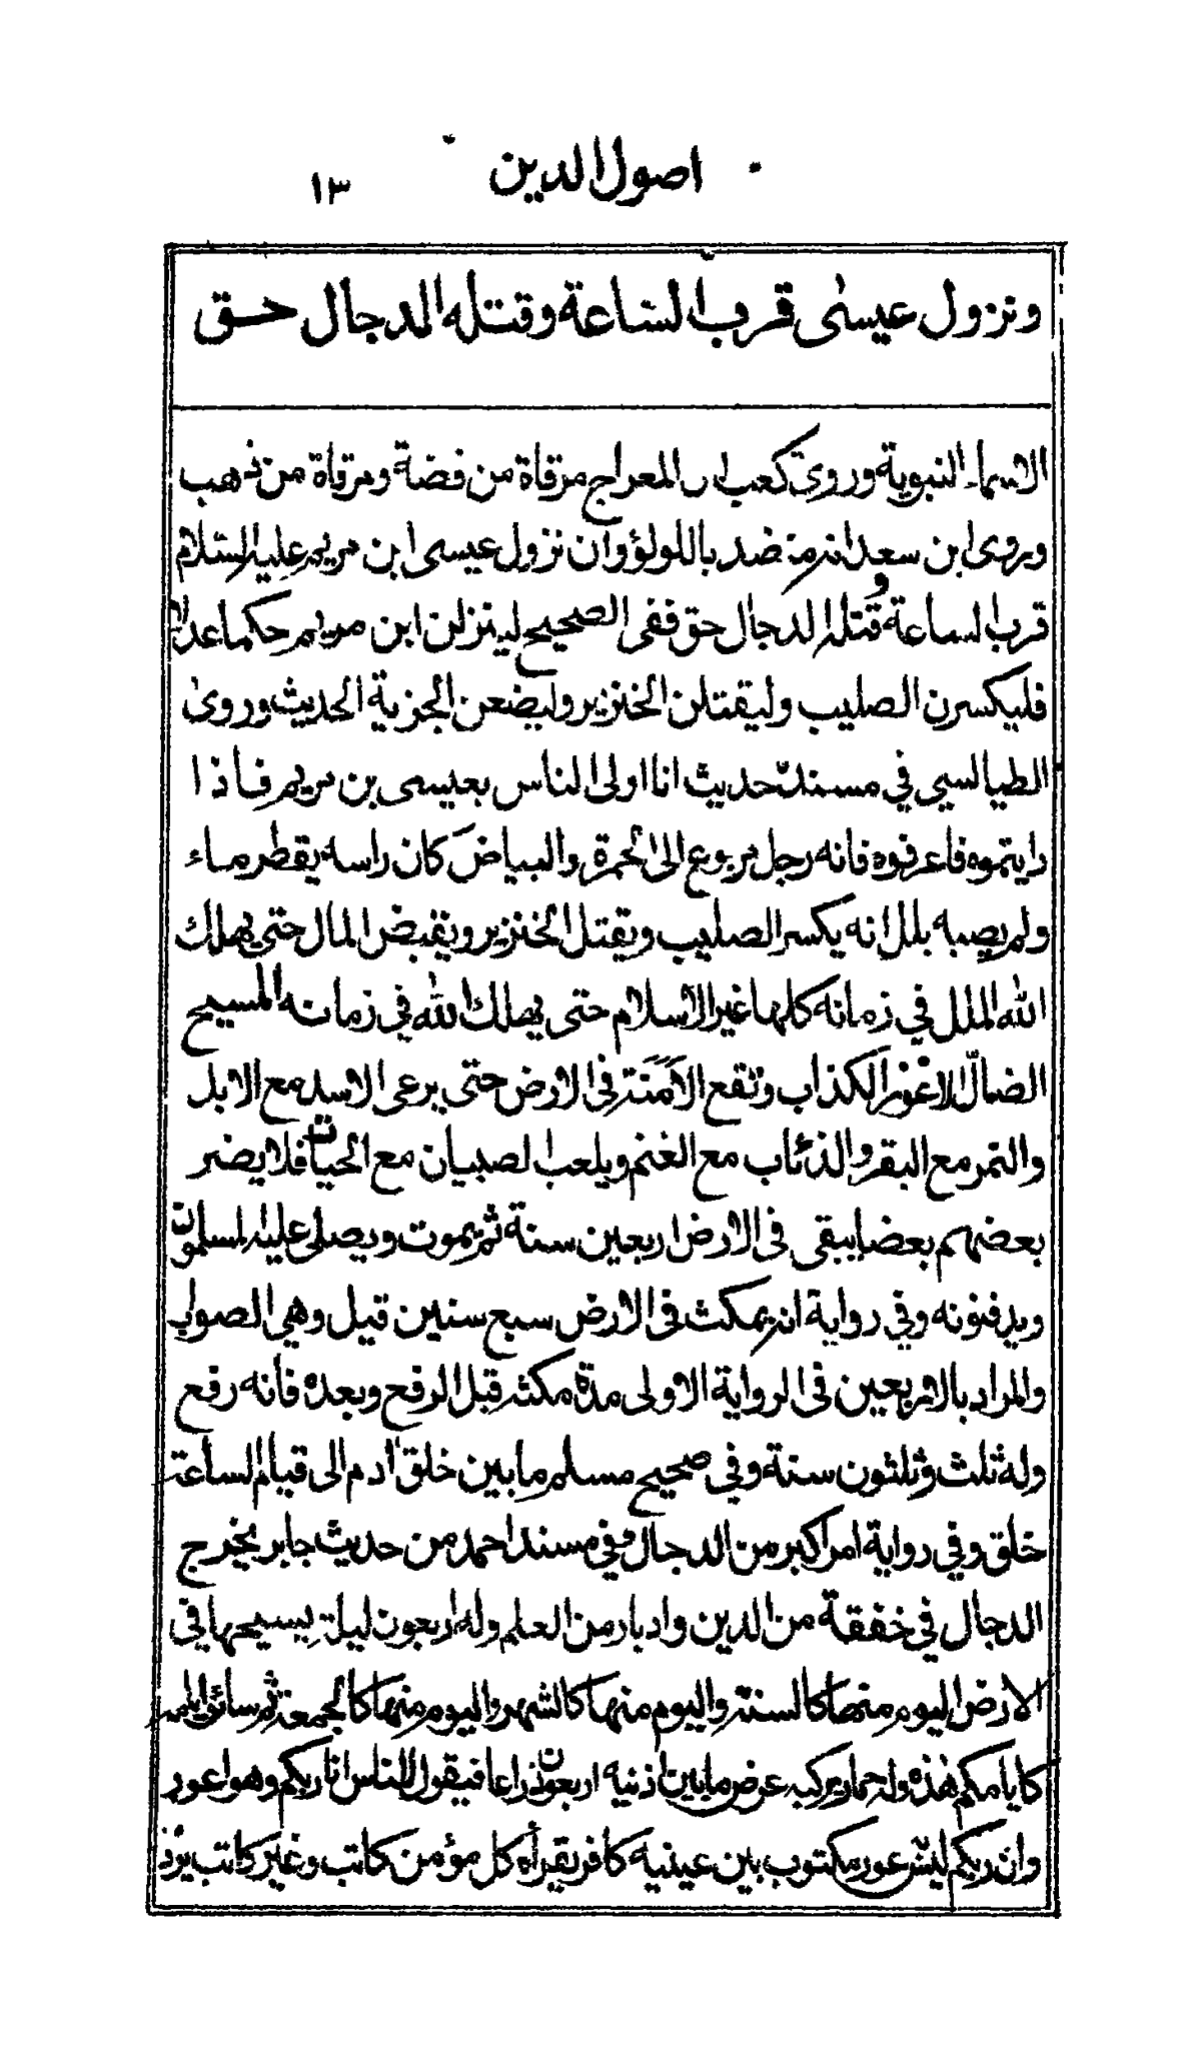 اصول الدين
١٣
ونزول عيسى قرب الساعة وقتله الدجال حق
الاسماء النبوية وروى كعب ان المعراج مرقاة من فضة ومرقاة من ذهب
وروى ابن سعد انه منضد باللولؤ وان نزول عيسى ابن مريم عليه السلام
قرب الساعة وقتله الدجال حق ففى الصحيح لينزلن ابن مريم حكما عدلا
فليكسرن الصليب وليقتلن الخنزير وليضعن الجزية الحديث وروى
الطيالسي في مسنده حديث انا اولى الناس بعيسى بن مريم فاذا
رايتموه فاعرفوه فانه رجل مربوع الى الحمرة والبياض كان راسه يقطر ماء
ولم يصبه بلل انه يكسر الصليب ويقتل الخنزير ويقبض المال حتى يهلك
الله الملل في زمانه كلها غير الاسلام حتى يهلك الله في زمانه المسيح
الضال الاعور الكذاب وتقع الامنة فى الارض حتى يرعى الاسد مع الابل
والنمر مع البقر والذئاب مع الغنم ويلعب الصبيان مع الحيات فلا يضر
بعضهم بعضا يبقى فى الارض اربعين سنة ثم يموت ويصلى عليه المسلمون
ويدفنونه وفي رواية انه يمكث فى الارض سبع سنين قيل وهي الصواب
والمراد بالاربعين فى الرواية الاولى مدة مكثه قبل الرفع وبعده فانه رفع
وله ثلث وثلثون سنة وفي صحيح مسلم ما بين خلق ادم الى قيام الساعة
خلق وفي رواية امر اكبر من الدجال وفي مسند احمد من حديث جابر يخرج
الدجال في خفقة من الدين وادبار من العلم وله اربعون ليلة يسيحها في
الارض اليوم منها كالسنة واليوم منها كالشهر واليوم منها كالجمعة ثم سائر ايامه
كايامكم هذه وله حمار يركبه عرض ما بين اذنيه اربعون ذراعا فيقول للناس انا ربكم وهو اعور
وان ربكم ليس باعور مكتوب بين عينيه كافر يقرأه كل مؤمن كاتب وغير كاتب يرد